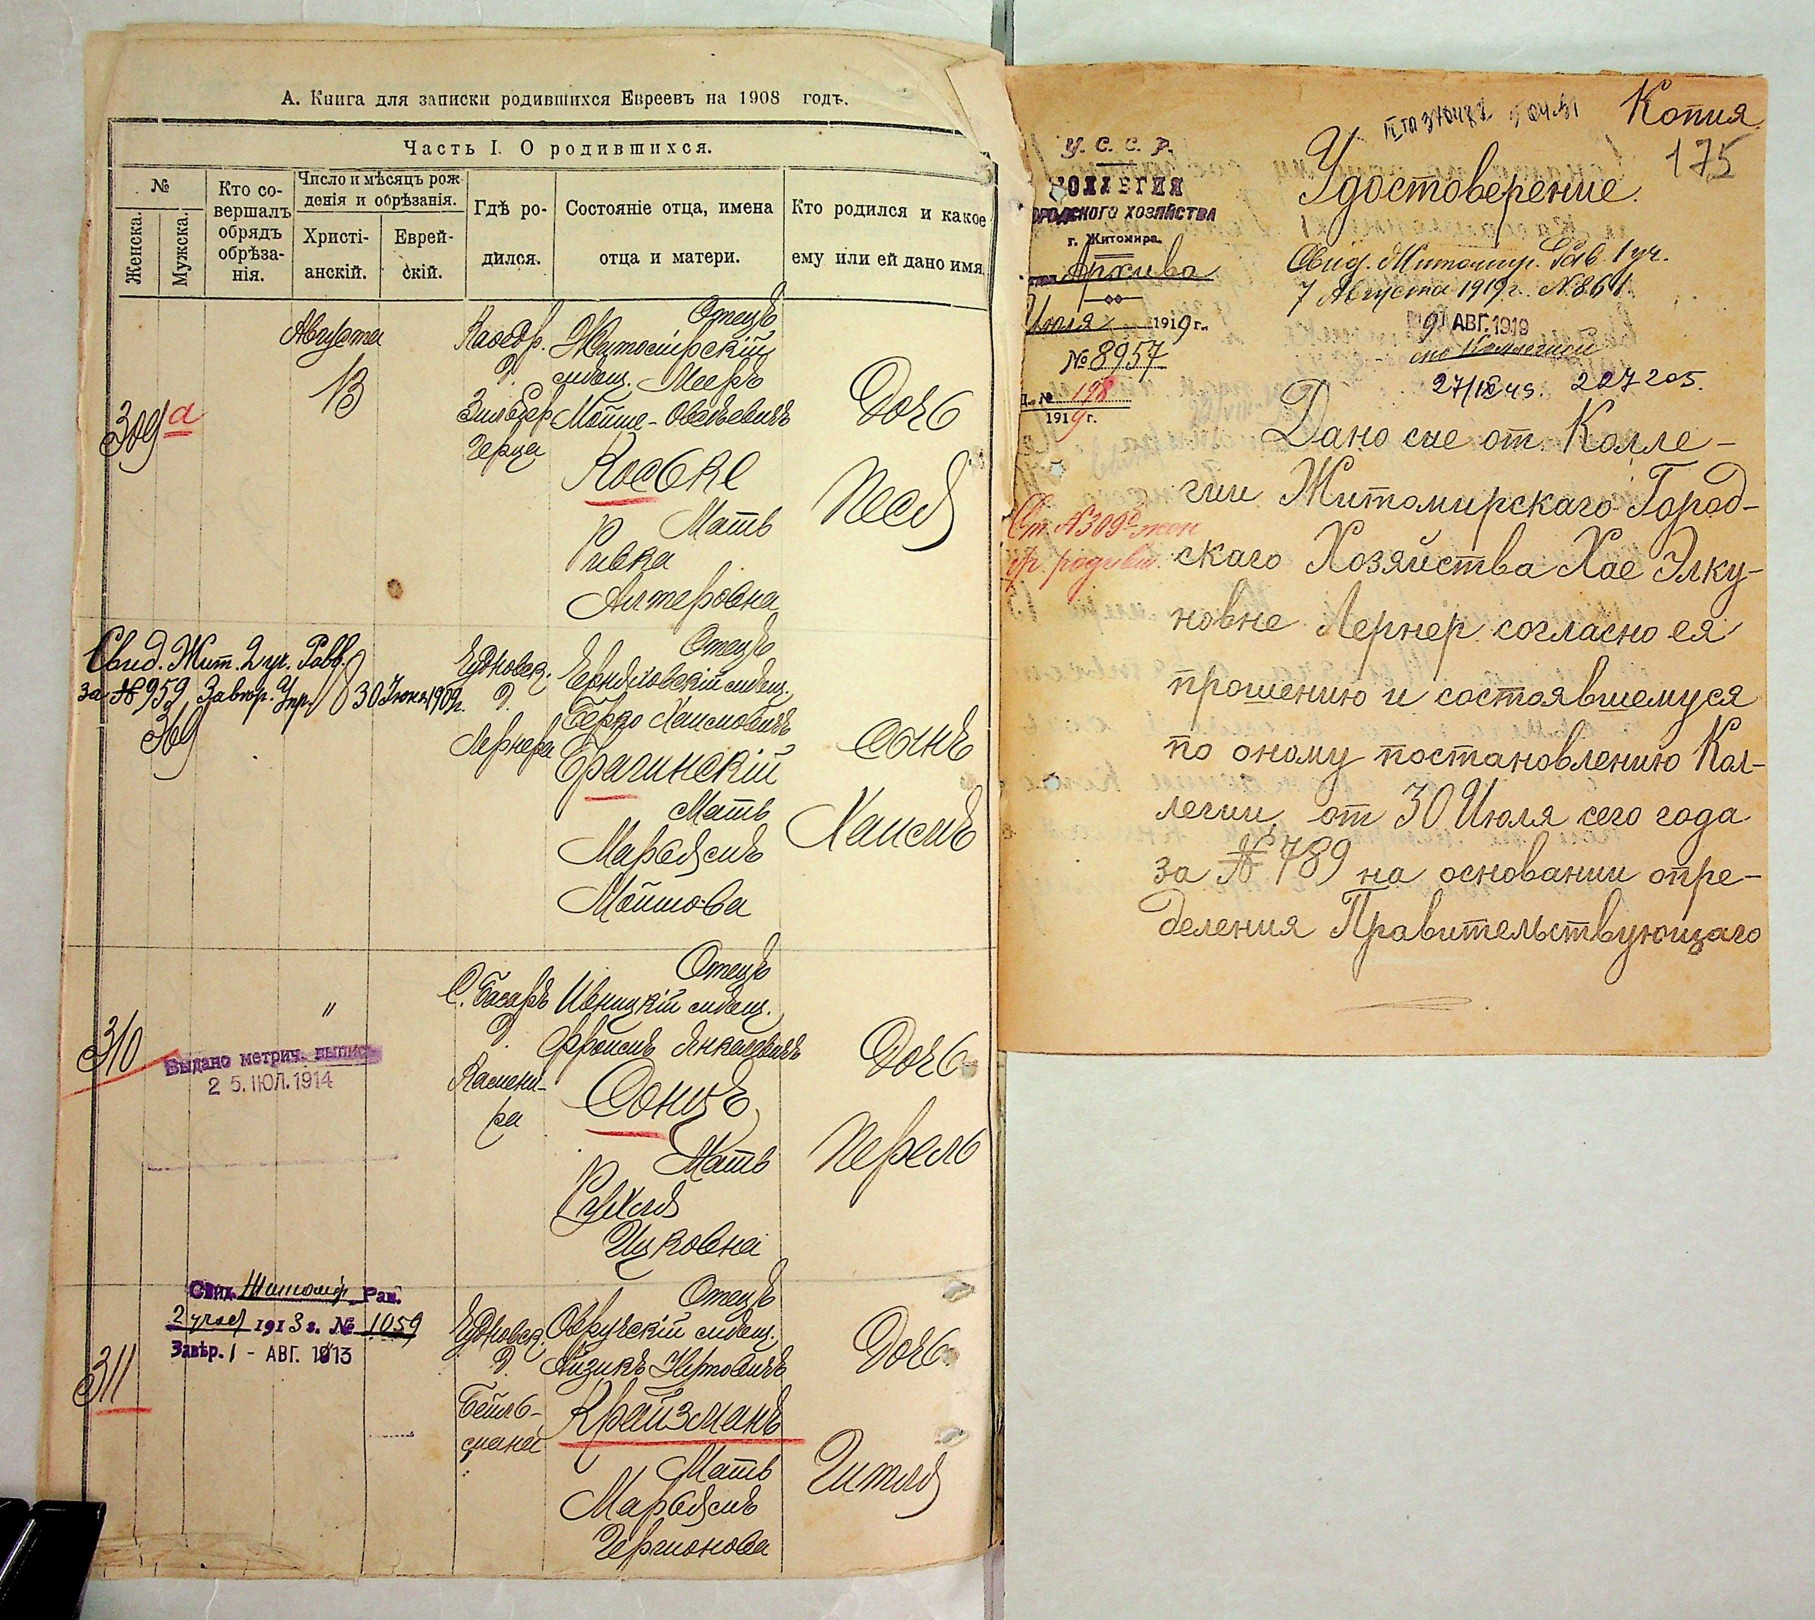 А. Книга для записки родившихся Евреевъ на 1908 годъ.
Часть I. О родившихся.
№
Женска.
Мужска.
Кто со-
вершалъ
обрядъ
обрѣза-
нія.
Число и мѣсяцъ рож
денія и обрѣзанія.
Христі-
анскій.
Еврей-
скій.
Гдѣ ро-
дился.
Состояніе отца, имена
отца и матери.
Кто родился и какое
ему или ей дано имя
309а
Августа
13
д.
Зильбер
герца
Отецъ
Житомірскій
мѣщ. Мееръ
Мошко-Овсѣевичъ
Мать
Ривка
Алтеровна
Дочь
Песя
Свид. Жит. 2 уч. Равв.
за № 959 Завѣр. Упр. 30 Іюня 1909г.
369
Чудновск.
д.
Лернера
Отецъ
мѣщ.
Берко Хаимовичъ
Брагинскій
Мать
Марьясмъ
Мошкова
Сынъ
Хаимъ
310
"
Выдано метрич. выпис.
2 5. ІЮЛ. 1914
С. Базаръ
д.
Камени-
ра
Отецъ
Ивницкій мѣщ.
Фроимъ Янкелевичъ
Мать
Рухля
Ицковна
Дочь
Перель
311
Свид. Житомір. Рав.
2 учас 1913 г. № 1059
Завѣр. 1 - АВГ. 1913
Чудновск.
д.
Бейль-
мана
Отецъ
Овручскій мѣщ.
Айзикъ
Крайзманъ
Мать
Марьясмъ
Гершонова
Дочь
Гитля
Копия
175
У. С. С. Р.
КОЛЛЕГИЯ
ГОРОДСКОГО ХОЗЯЙСТВА
г. Житомира.
Архива
Июля 1919 г.
№ 8957
198
1919 г.
Удостоверение.
Свид. Житомир. Рав. 1 уч.
7 Августа 1919 г. №861.
9 АВГ. 1919
227205.
Ст. №309а жен
Дано сие от Колле-
гии Житомирскаго Город-
скаго Хозяйства Хае Элку-
новне Лернер согласно ея
прошению и состоявшемуся
по оному постановлению Кол-
легии, от 30 Июля сего года
за № 789 на основании опре-
деления Правительствующаго